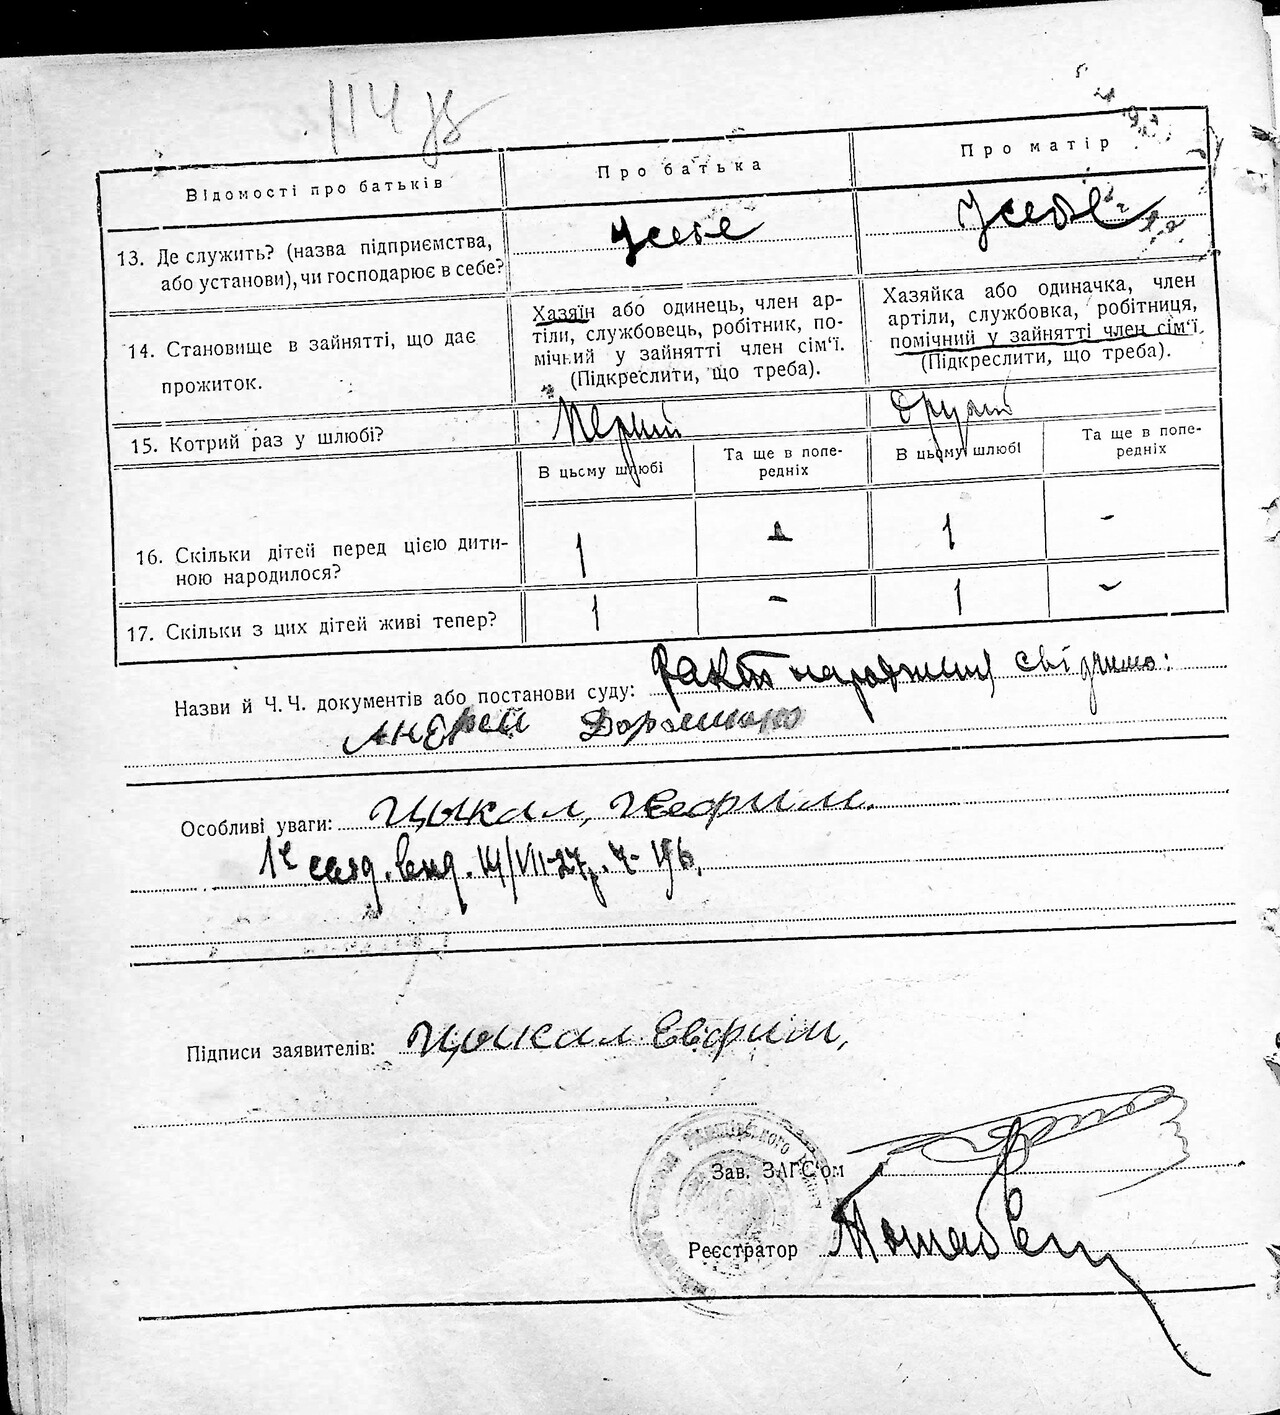 114
Відомості про батьків
Про батька
Про матір
13. Де служить? (назва підприємства,
або установи), чи господарює в себе?
У себе
У себе
14. Становище в зайнятті, що дає
прожиток.
Хазяїн або одинець, член ар-
тіли, службовець, робітник, по-
мічний у зайнятті член сім'ї.
(Підкреслити, що треба).
Хазяйка або одиначка, член
артіли, службовка, робітниця,
помічний у зайнятті член сім'ї.
(Підкреслити, що треба).
15. Котрий раз у шлюбі?
Перший
другий
В цьому шлюбі
Та ще в попе-
редніх
В цьому шлюбі
Та ще в попе-
редніх
16. Скільки дітей перед цією дити-
ною народилося?
1
1
-
17. Скільки з цих дітей живі тепер?
1
-
1
-
Назви й Ч. Ч. документів або постанови суду: Факт народження свідчимо:
Андрей
Особливі уваги: Цыкал,
14/VII-27р. Ч-196.
Підписи заявителів: Цыкал Евфим,
Зав. ЗАГС'ом
Реєстратор